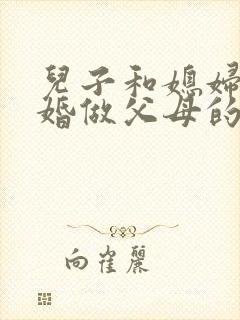 兒子和媳婦
婚做父母的
向崔麗